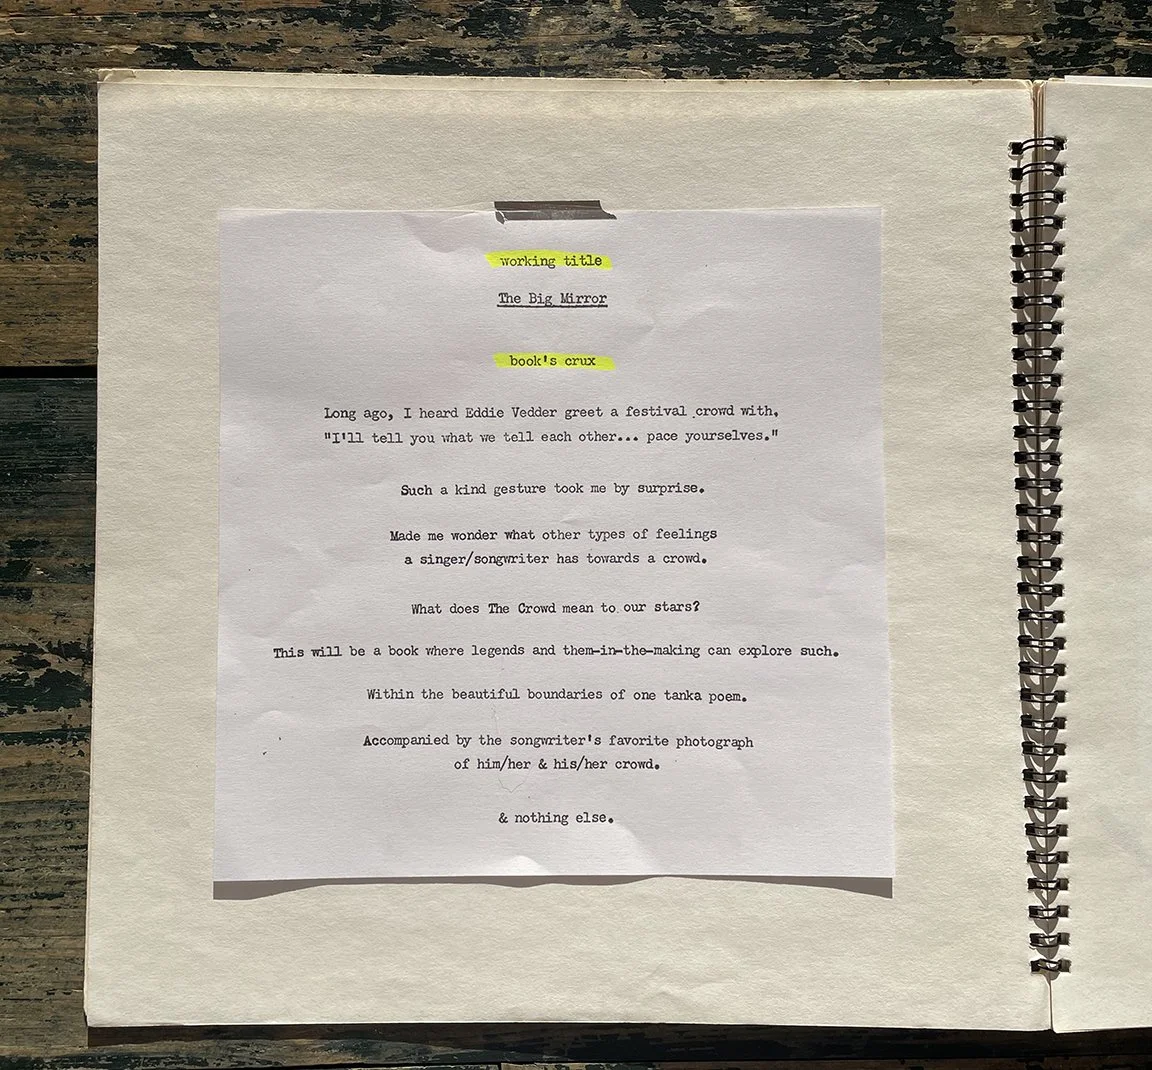 working title
The Big Mirror
book's crux
Long ago, I heard Eddie Vedder greet a festival crowd with,
"I'll tell you what we tell each other... pace yourselves."
Such a kind gesture took me by surprise.
Made me wonder what other types of feelings
a singer/songwriter has towards a crowd.
What does The Crowd mean to our stars?
This will be a book where legends and them-in-the-making can explore such.
Within the beautiful boundaries of one tanka poem.
Accompanied by the songwriter's favorite photograph
of him/her & his/her crowd.
& nothing else.